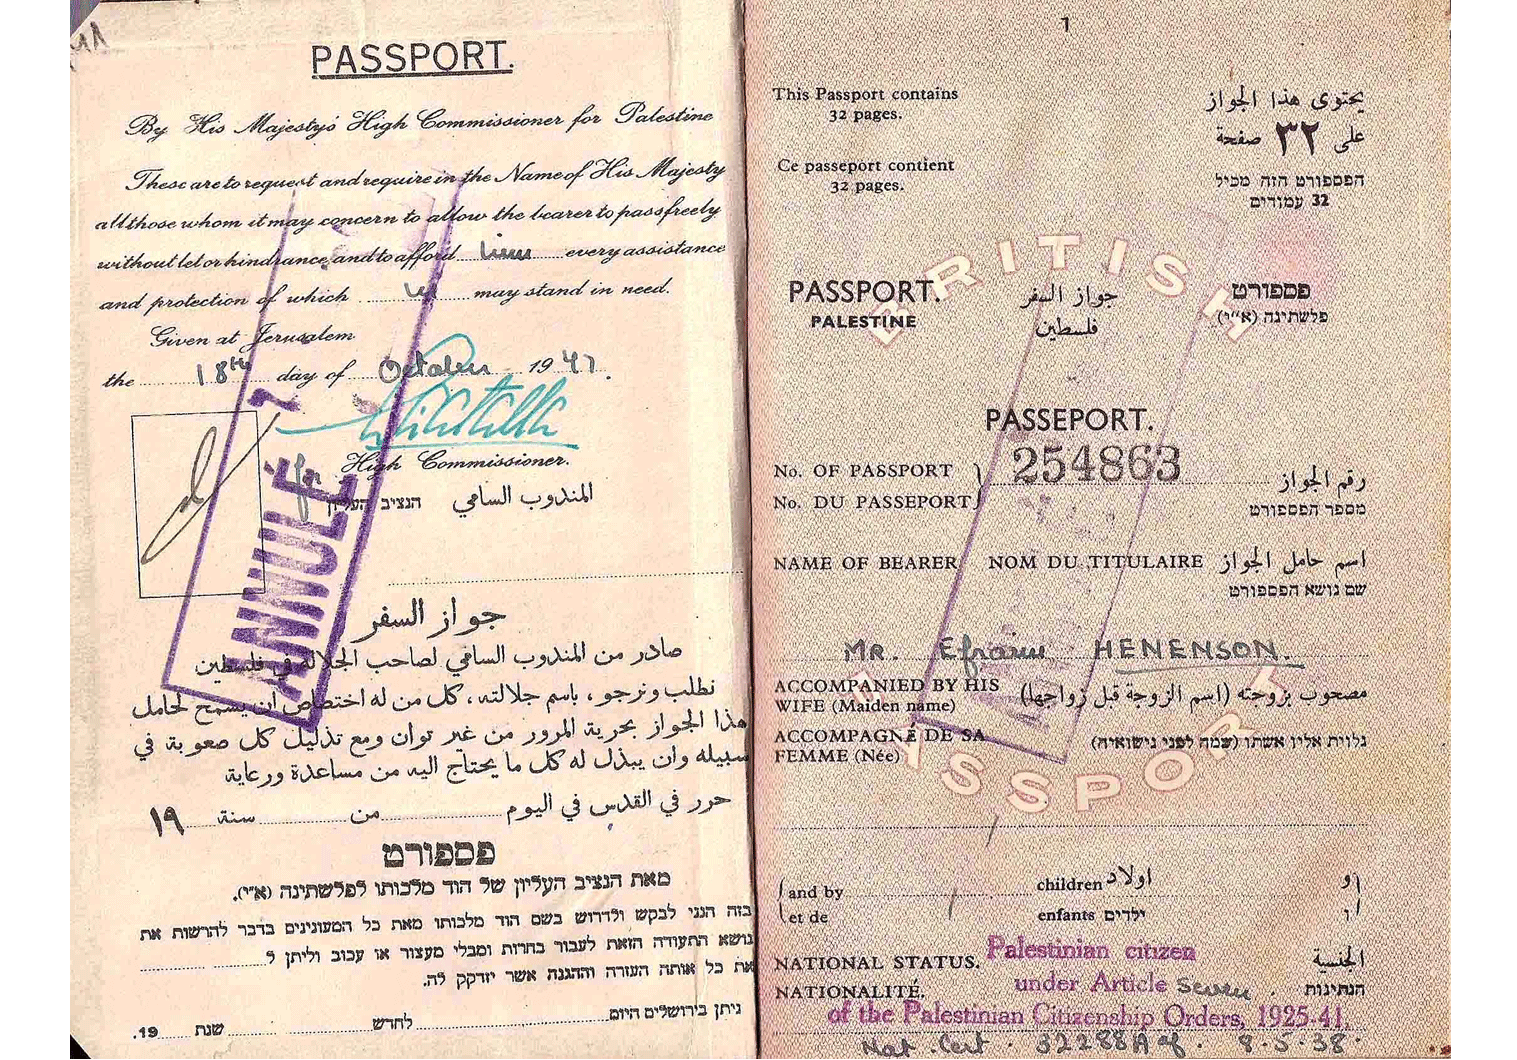 PASSPORT.
By His Majesty's High Commissioner for Palestine
These are to request and require in the Name of His Majesty
all those whom it may concern to allow the bearer to pass freely
without let or hindrance, and to afford him every assistance
and protection of which he may stand in need.
Given at Jerusalem
the 18th day of October 1947.
High Commissioner.
הנציב העליון المندوب السامي
ANNULÉ
جواز السفر
صادر من المندوب السامي لصاحب الجلالة في فلسطين
نطلب ونرجو، باسم جلالته، كل من له اختصاص ان يسمح لحامل
هذا الجواز بحرية المرور من غير توان ومع تذليل كل صعوبة في
سبيله وان يبذل له كل ما يحتاج اليه من مساعدة ورعاية
حرر في القدس في اليوم من سنة ١٩
פספורט
מאת הנציב העליון של הוד מלכותו לפלשתינה (א״י).
בזה הנני לבקש ולדרוש בשם הוד מלכותו מאת כל המעונינים בדבר להרשות את
נושא התעודה הזאת לעבור בחרות ומבלי מעצור או עכוב וליתן ל
את כל אותה העזרה וההגנה אשר יזדקק לה.
ניתן בירושלים היום לחדש שנת 19.
1
This Passport contains
32 pages.
يحتوي هذا الجواز
على ٣٢ صفحة
Ce passeport contient
32 pages.
הפספורט הזה מכיל
32 עמודים
BRITISH
PASSPORT. جواز السفر פספורט
PALESTINE فلسطين פלשתינה (א״י)
PASSEPORT.
No. OF PASSPORT 254863 رقم الجواز
No. DU PASSEPORT מספר הפספורט
NAME OF BEARER NOM DU TITULAIRE اسم حامل الجواز
שם נושא הפספורט
MR. Efraim HENENSON.
ACCOMPANIED BY HIS
WIFE (Maiden name)
مصحوب بزوجته (اسم الزوجة قبل زواجها)
ACCOMPAGNÉ DE SA
FEMME (Née)
נלוית אליו אשתו (שמה לפני נישואיה)
PASSPORT
and by children اولاد و
et de enfants ילדים ו
NATIONAL STATUS. Palestinian citizen الجنسية
NATIONALITÉ. under Article Seven הנתינות
of the Palestinian Citizenship Orders, 1925-41.
Nat. Cert. 32288 of 9.5.38.